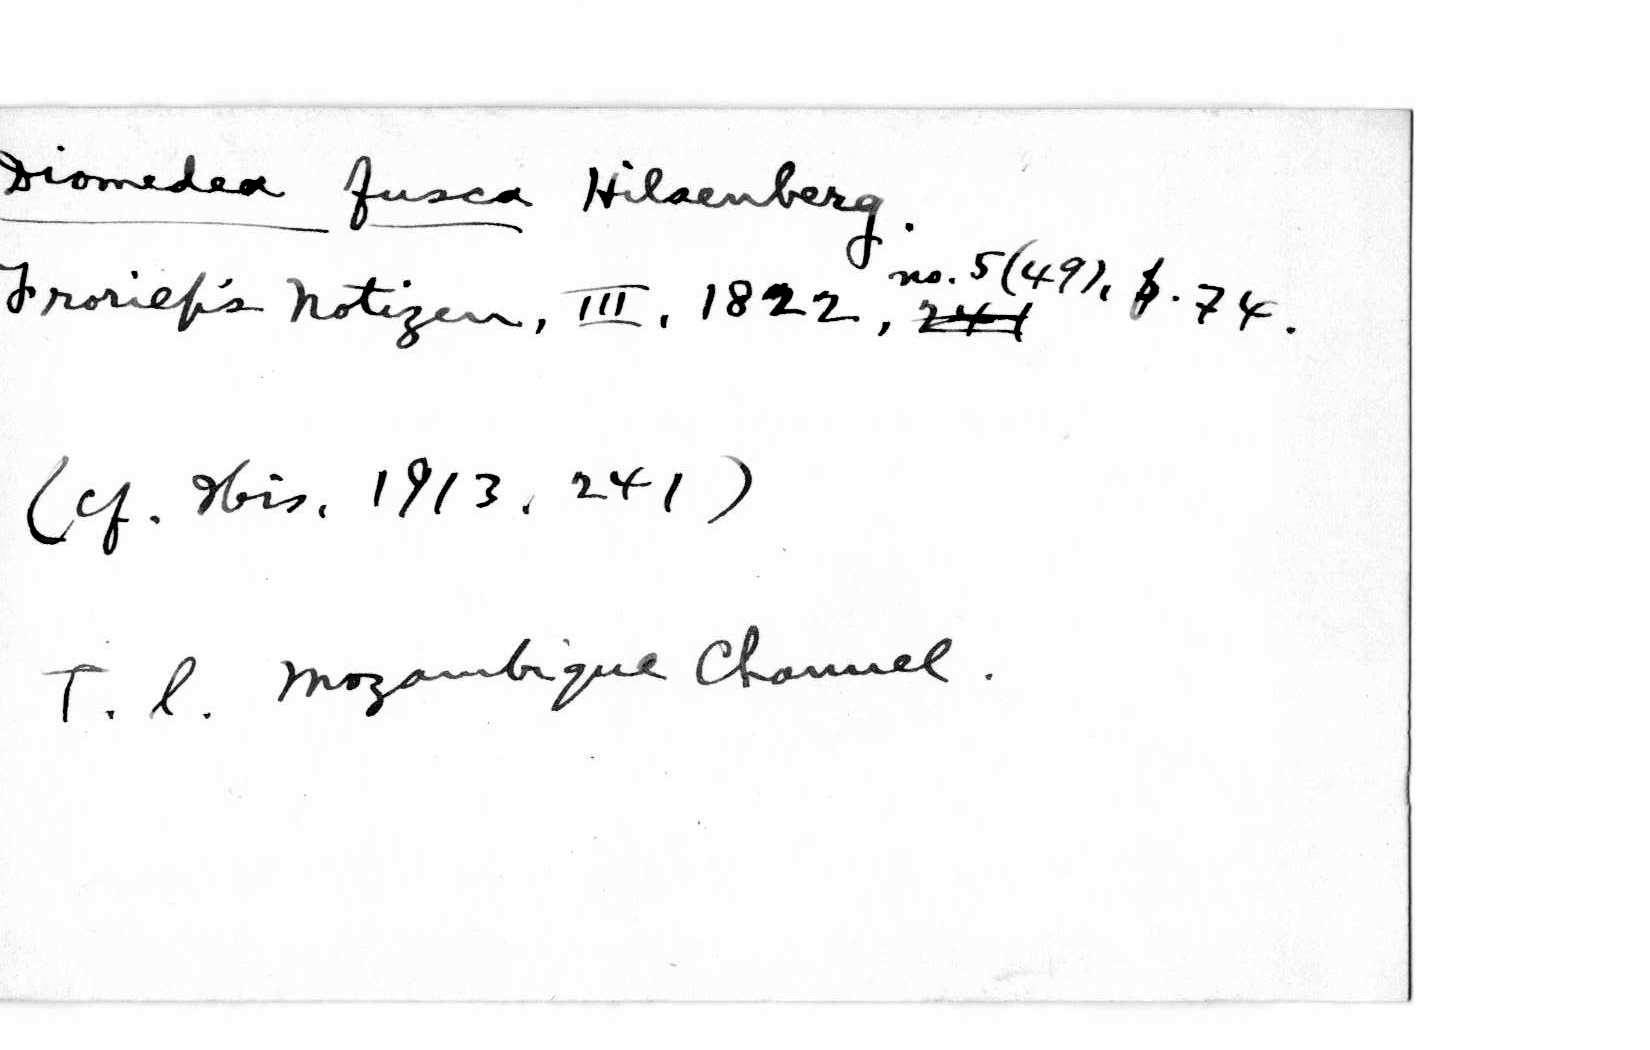 Diomedea fusca Hilsenberg.
Froriep's Notizen, III, 1822, 241 no. 5(49), p. 74.
(cf. Ibis, 1913, 241)
T. l. Mozambique Channel.